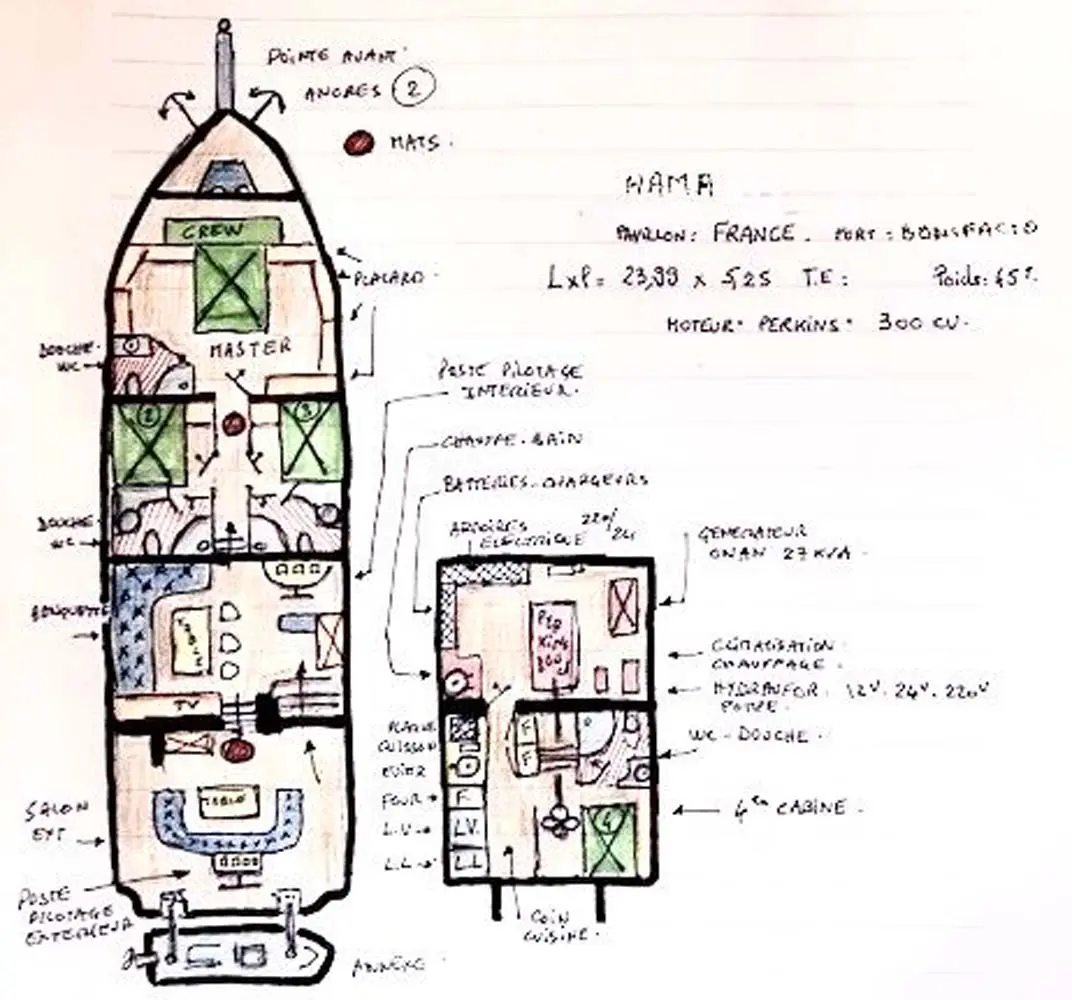 POINTE AVANT
ANCRES 2
MATS.
HAMA
PAVILLON: FRANCE. PORT: BONIFACIO
Lxl= 23,99 x 5,25 T.E: Poids: 45T.
MOTEUR: PERKINS: 300 CV.
CREW
PLACARD
MASTER
DOUCHE
WC
2
3
DOUCHE
WC
POSTE PILOTAGE
INTERIEUR.
BATTERIES. CHARGEURS
ARMOIRES 220/24
ELECTRIQUE
GENERATEUR
ONAN 27 KVA.
BANQUETTE
TABLE
TV
PERKINS 300
CLIMATISATION
CHAUFFAGE.
HYDRAUFOR. 12V. 24V. 220V
PLAQUE
CUISSON
EVIER
FOUR F.
L.V. LV.
L.L LL
F
F
WC - DOUCHE.
4 CABINE.
4
SALON
EXT
TABLE
POSTE
PILOTAGE
EXTERIEUR
COIN
CUISINE.
ANNEXE